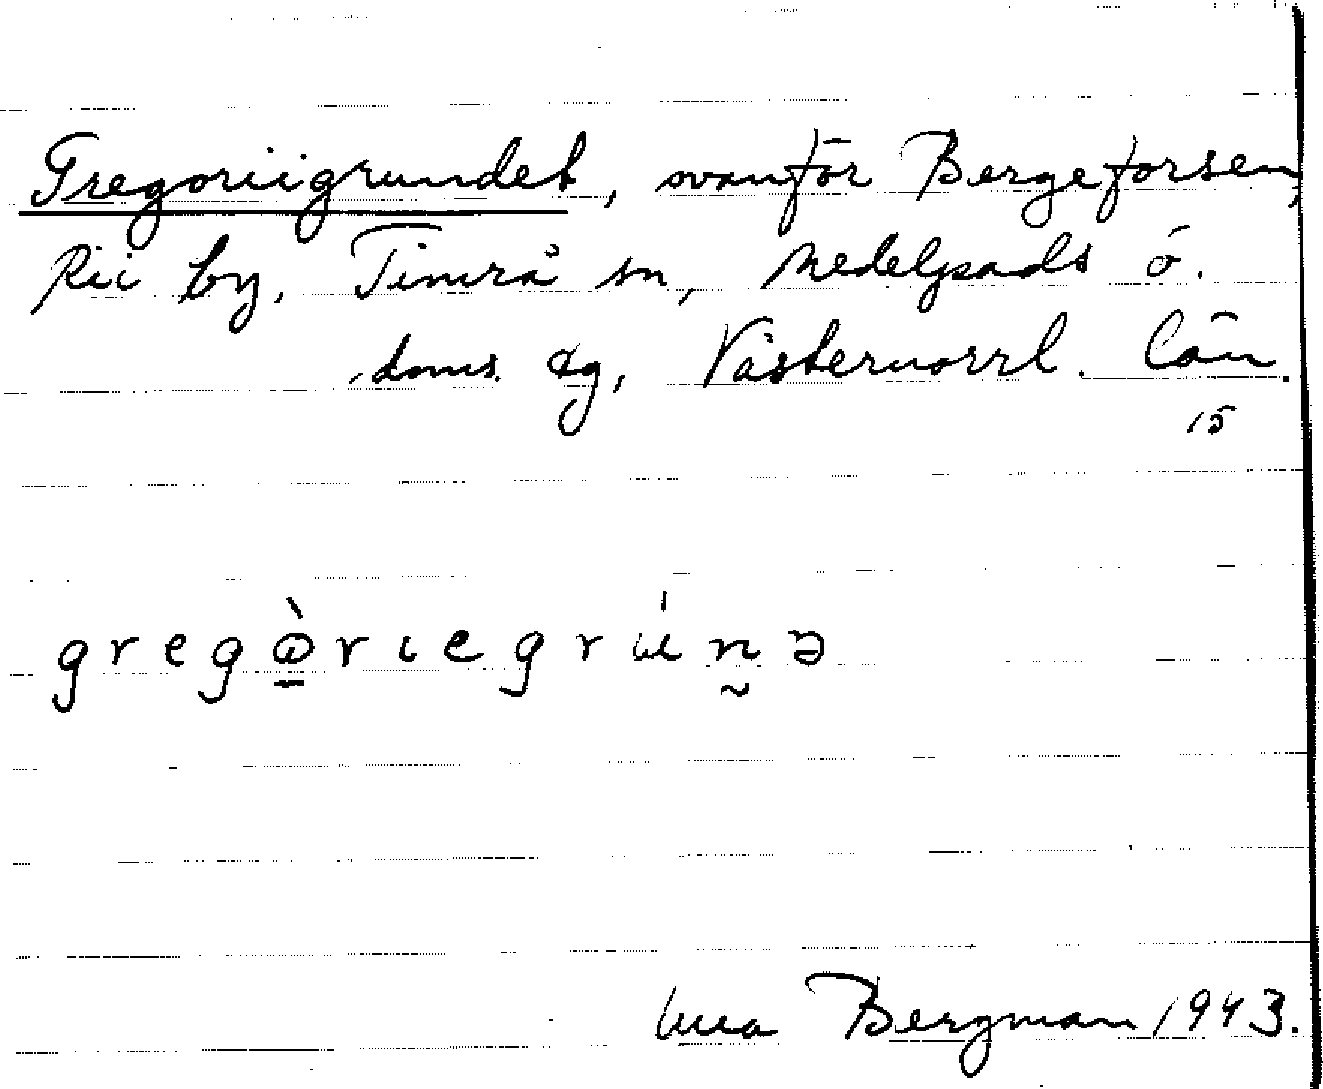 Gregoriigrundet, ovanför Bergeforsen,
Rii by, Timrå sn, Medelpads ö.
doms. sg, Västernorrl. län.
15
gregòriegrúnə
Bergman 1943.